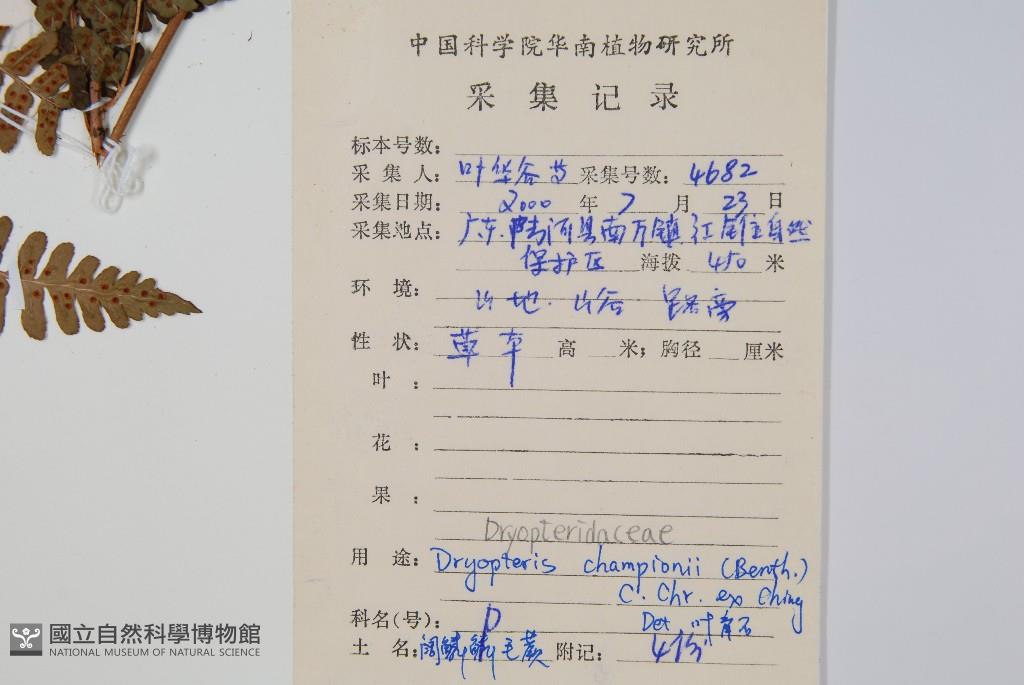 中国科学院华南植物研究所
采集记录
标本号数：
采集人：叶华谷等 采集号数：4682
采集日期：2000年7月23日
采集地点：广东.陆河县南万镇红 自然
保护区 海拨 450 米
环境：山地.山谷 路旁
性状：草本 高 米；胸径 厘米
叶：
花：
果：
Dryopteridaceae
用途：Dryopteris championii (Benth.)
C. Chr. ex Ching
科名(号)：P Det. 叶育石
土名：阔鳞鳞毛蕨 附记：
國立自然科學博物館
NATIONAL MUSEUM OF NATURAL SCIENCE